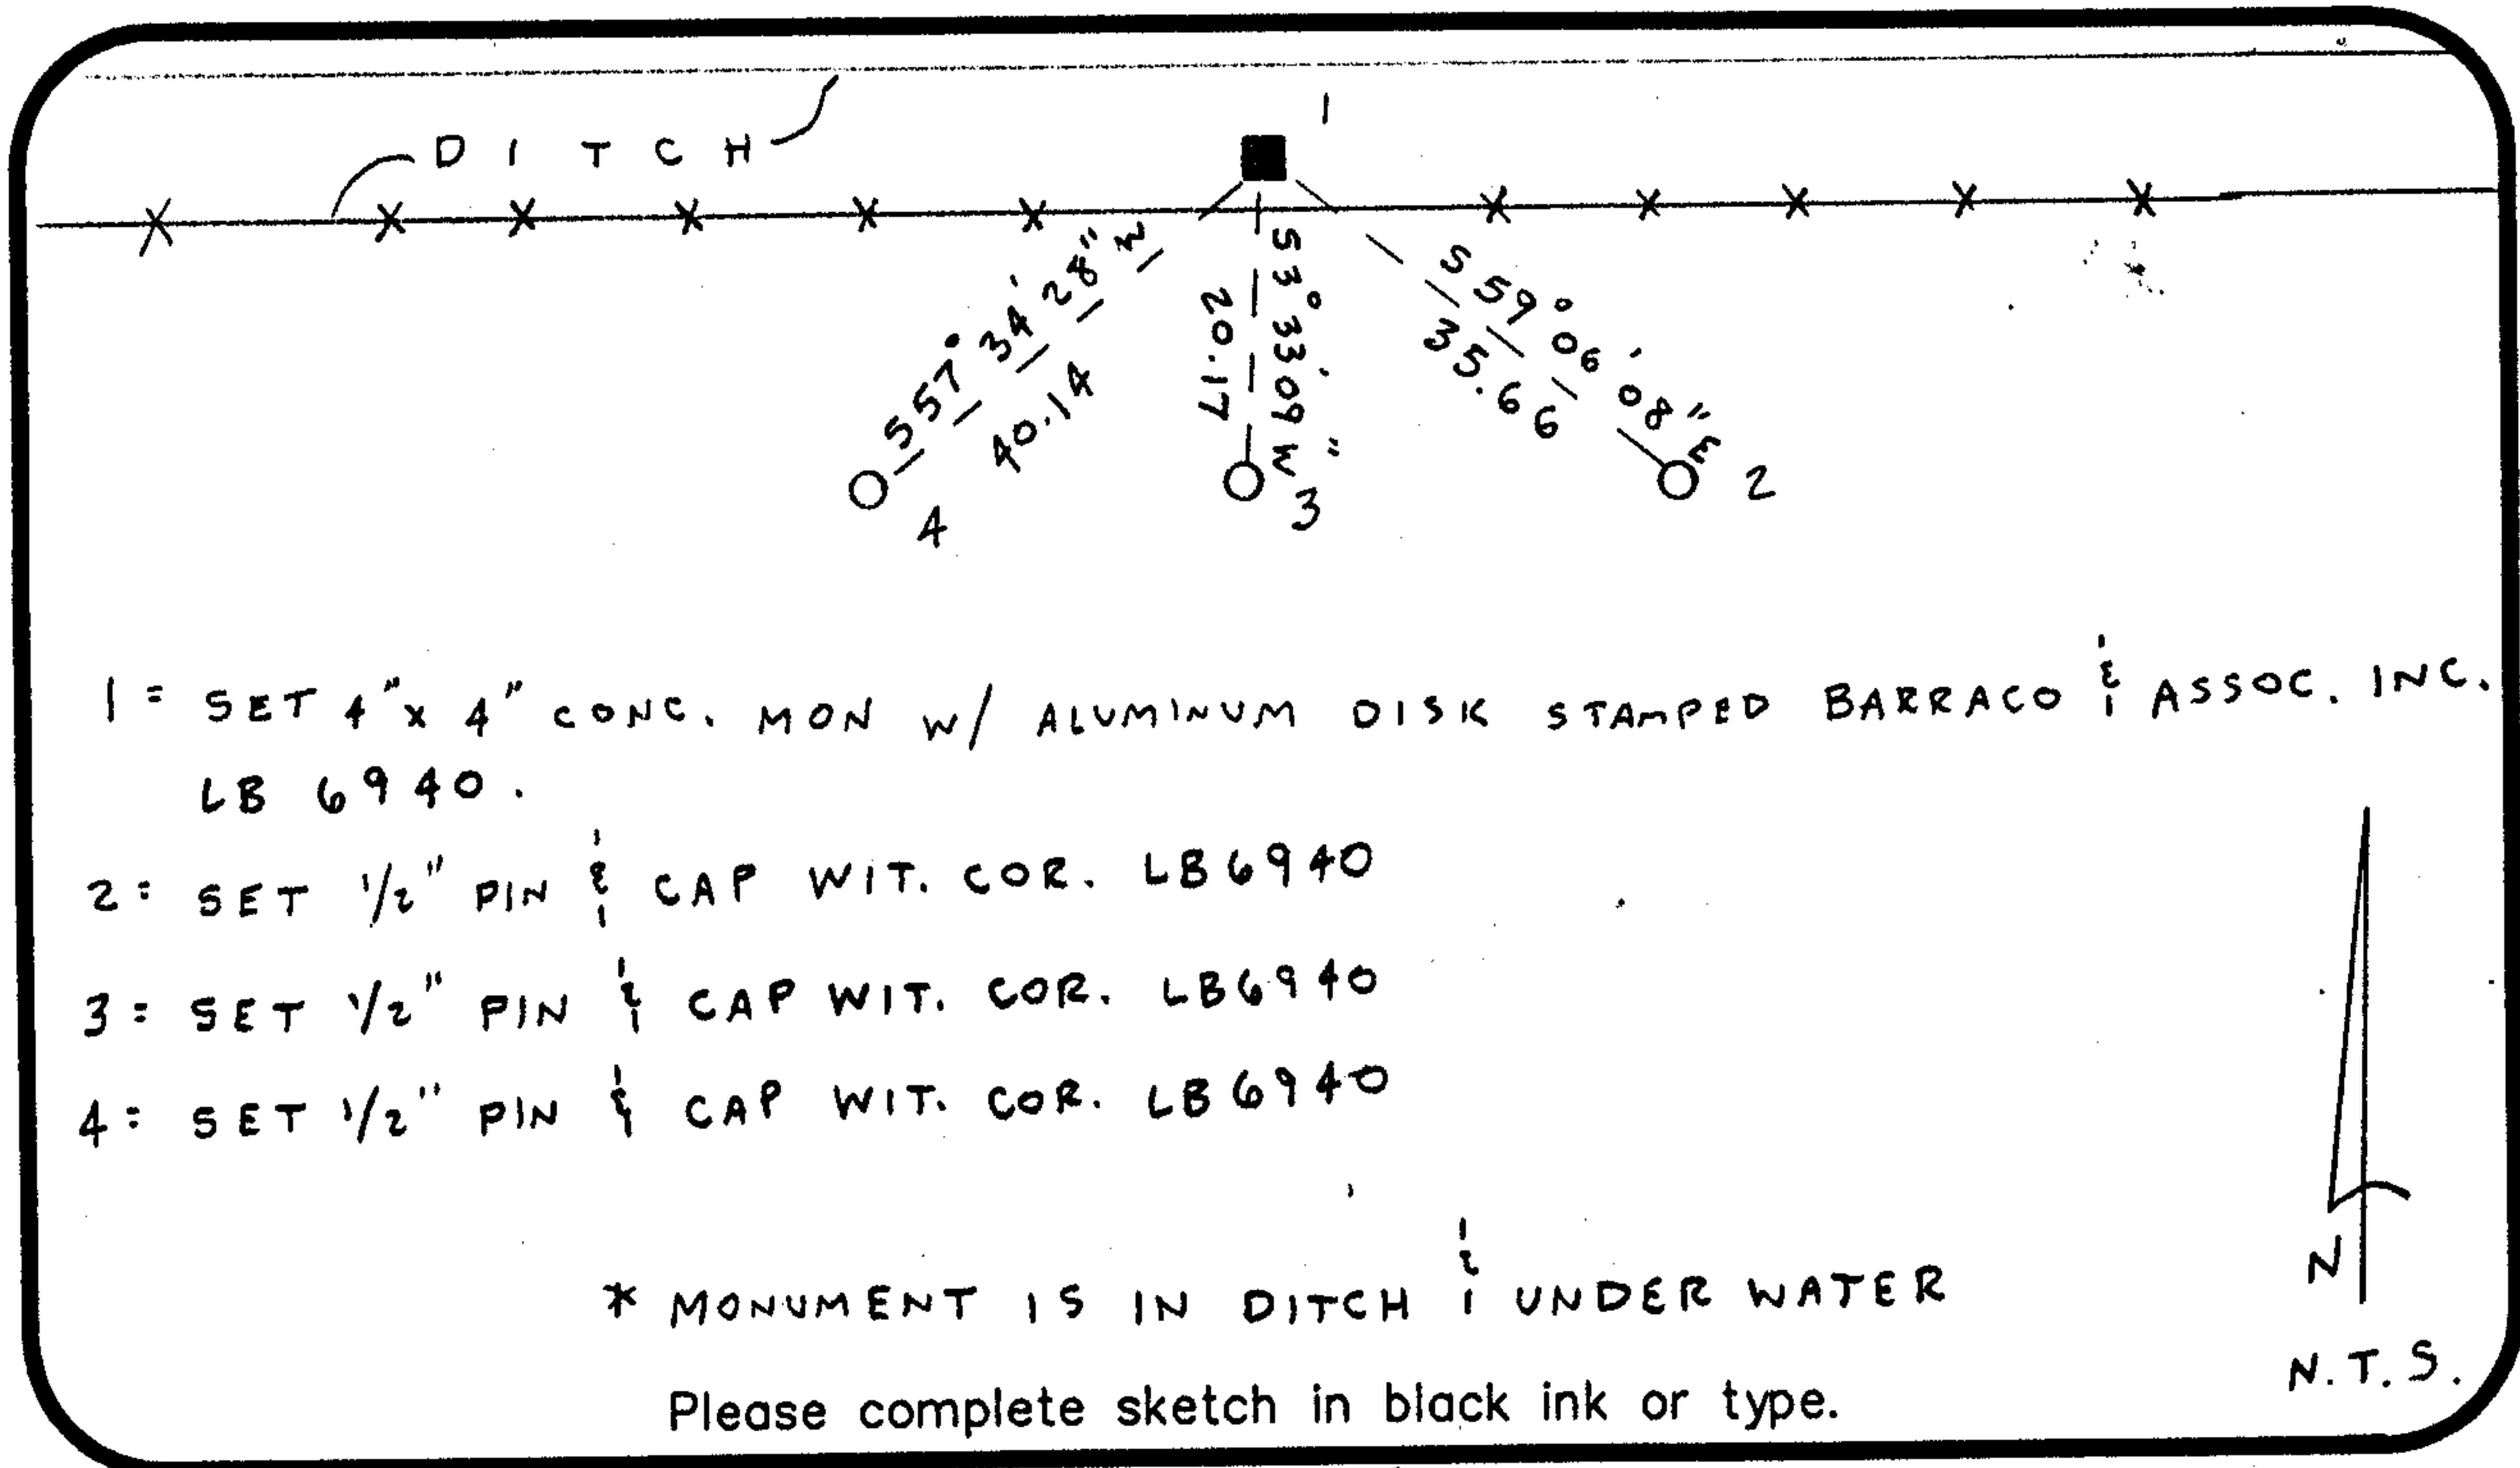 DITCH
1
S 57° 34' 28" W
40.14
4
S 3° 33' 09" W
20.17
3
S 59° 06' 08" E
35.66
2
1 = SET 4" x 4" CONC. MON W/ ALUMINUM DISK STAMPED BARRACO & ASSOC. INC.
LB 6940.
2 = SET 1/2" PIN & CAP WIT. COR. LB6940
3 = SET 1/2" PIN & CAP WIT. COR. LB6940
4 = SET 1/2" PIN & CAP WIT. COR. LB6940
* MONUMENT IS IN DITCH & UNDER WATER
N
N.T.S.
Please complete sketch in black ink or type.